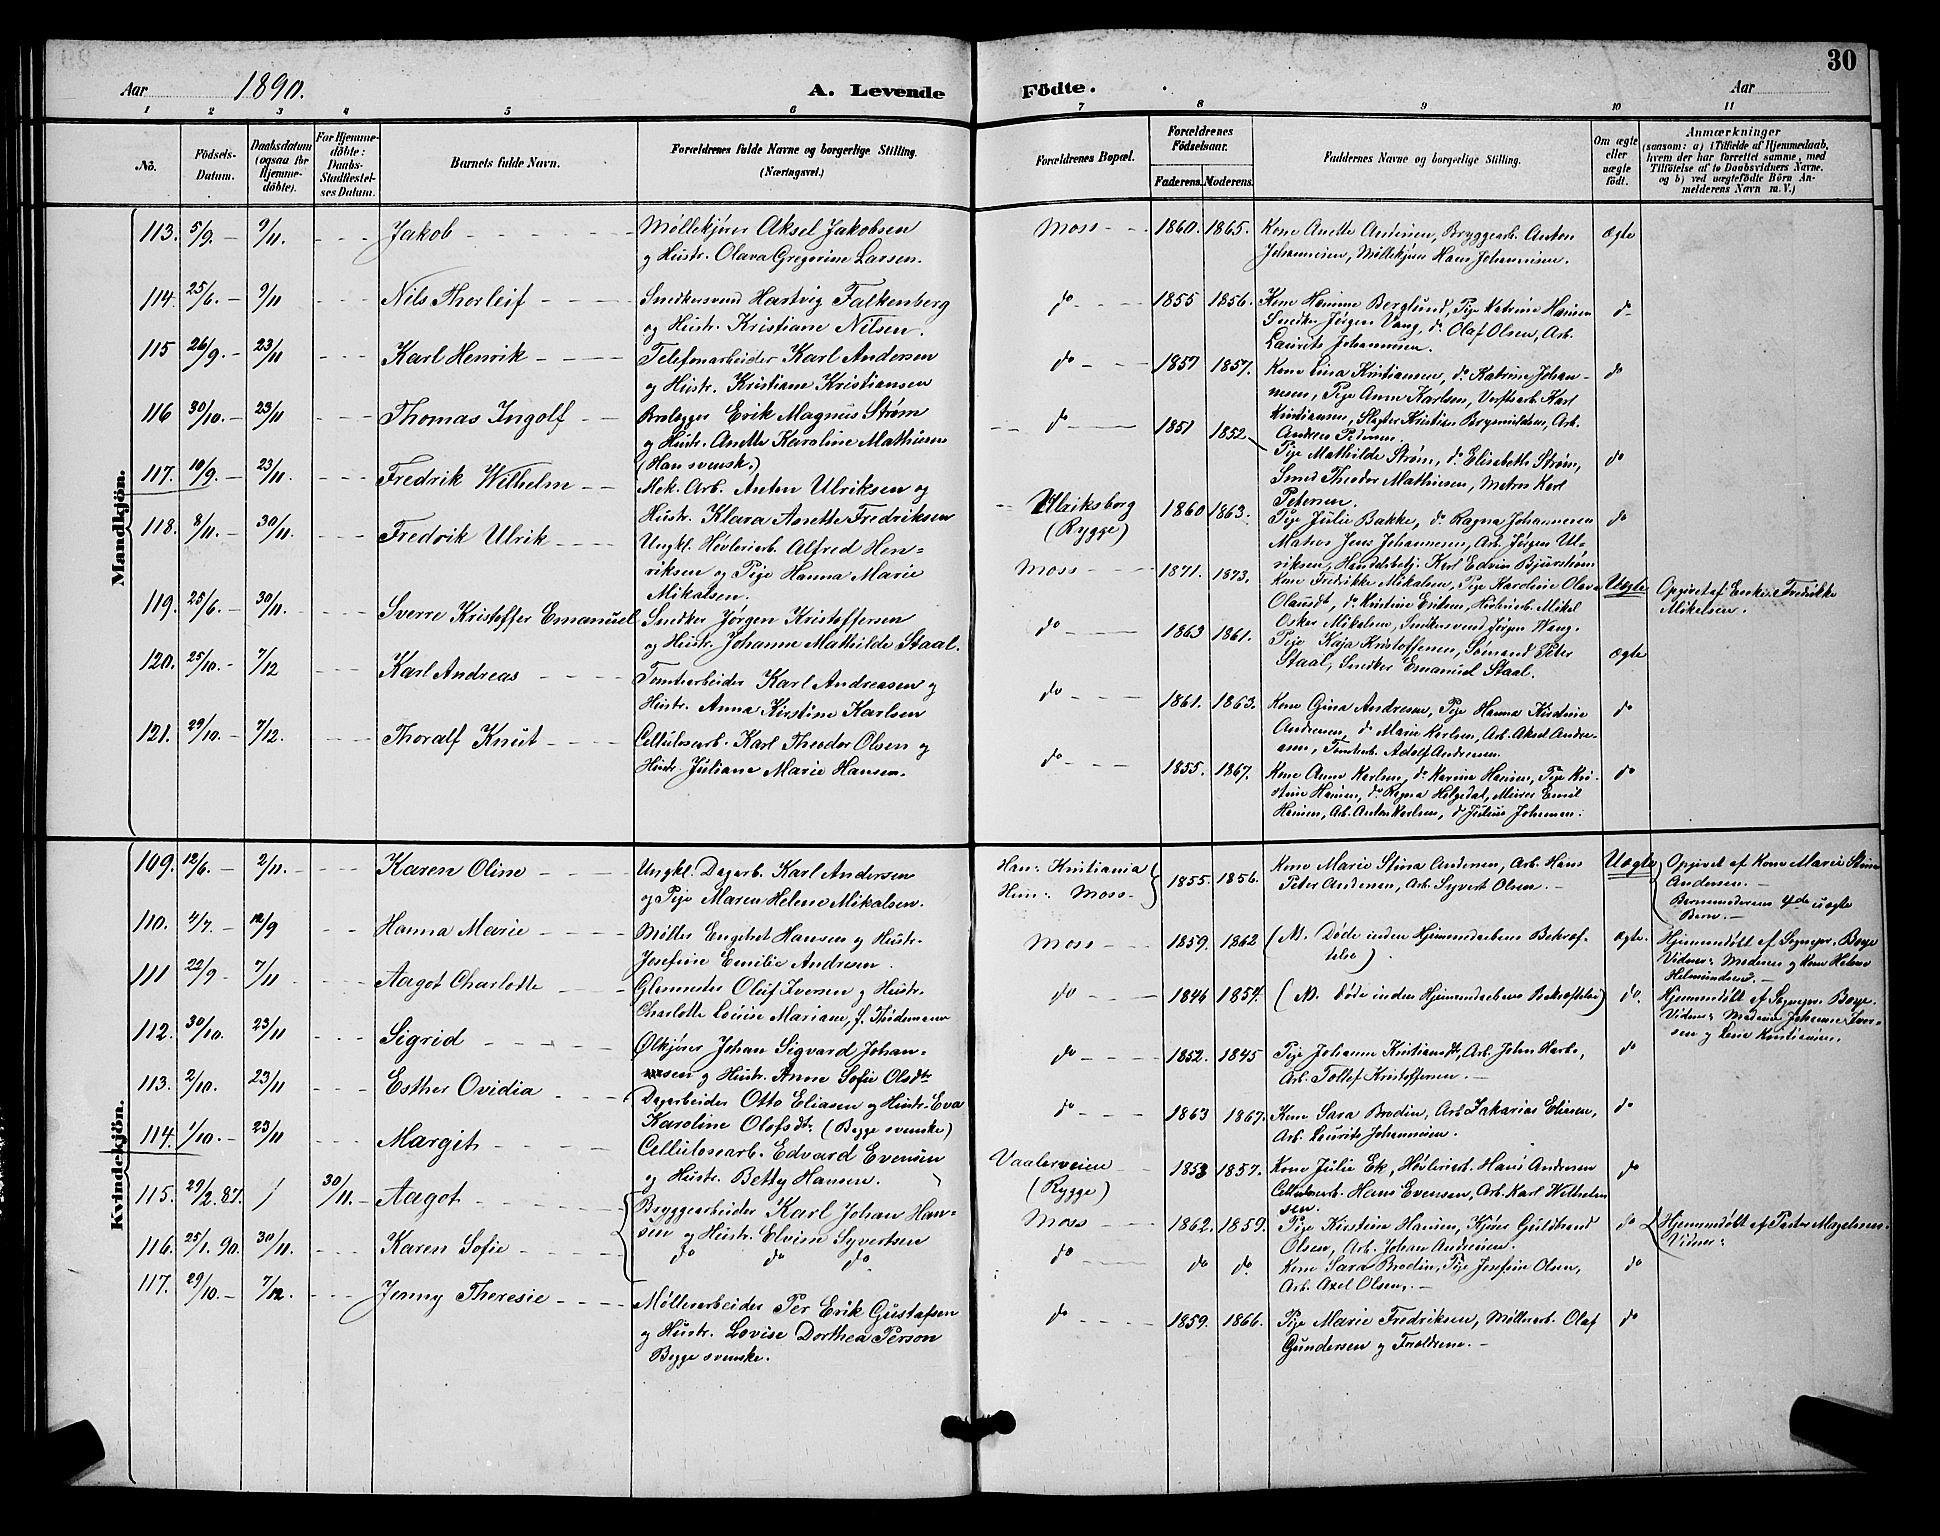 Aar 1890. A. Levende Födte. Aar 30
1 2 3 4 5 6 7 8 9 10 11
No.
Födsels-Datum.
Daabsdatum (ogsaa for Hjemmedöbte).
For Hjemmedöbte: Daabs-Stadfæstelses Datum.
Barnets fulde Navn.
Forældrenes fulde Navne og borgerlige Stilling. (Næringsvei.)
Forældrenes Bopæl.
Forældrenes Födselsaar.
Faderens. Moderens.
Faddernes Navne og borgerlige Stilling.
Om ægte eller uægte födt.
Anmærkninger
(saasom: a) i Tilfælde af Hjemmedaab, hvem der har forrettet samme, med Tilföielse af to Daabsvidners Navne. og b) ved uægtefödte Börn Anmelderens Navn m.V.)
Mandkjön.
113. 5/9. - 9/11. - - - Jakob - - - Møllekjører Aksel Jakobsen
og Hustr. Olava Gregorine Larsen.
Moss - - 1860. 1865. Kone Anette Andersen, Bryggearb. Anton
Johannesen, Møllekjører Hans Johannesen.
Ægte
114. 25/6. - 9/11 - - - Nils Thorleif - - - Snedkersvend Hartvig Falkenberg
og Hustr. Kristiane Nilsen.
do - - - 1855 1856. Kone Hanna Berglund, Pige Katrine Hansen
Snedker Jørgen Vang, do Olaf Olsen, Arb.
Laurits Johannesen.
do
115 26/9. - 23/11 - - - Karl Henrik - - - Telefonarbeider Karl Andersen
og Hustr. Kristiane Kristiansen
do - - - 1857 1857. Kone Lina Kristiansen, do Katrine Johan-
nesen, Pige Anna Karlsen, Verftsarb. Karl
Kristiansen, Slagter Kristian Arb.
Andreas Pedersen.
do
116 30/10. - 23/11 - - - Thomas Ingolf - Brolægger Erik Magnus Strøm
og Hustr. Anette Karoline Mathiesen
(Han svensk.)
do - - - 1851 1852 Pige Mathilde Strøm, do Elisabeth Strøm,
Smed Theodor Mathiesen, Matros Karl
Petersen.
do
117. 10/9. - 23/11. - - - Fredrik Wilhelm - - Mek. Arb. Anton Ulriksen og
Hustr. Klara Anette Fredriksen
Ulriksborg
(Rygge)
1860 1863. Pige Julie Bakke, do Ragna Johannesen
Matros Jens Johannesen, Arb. Jørgen Ul-
riksen, Handelsbetj. Karl Edvin Bjurstrøm
do
118. 8/11. - 30/11. - - - Fredrik Ulrik - - - Ungkl. Høvleriarb. Alfred Hen-
riksen og Pige Hanna Marie
Mikalsen.
Moss - - - 1871. 1873. Kone Fredrikke Mikalsen, Pige Karoline Olava
Olausdt, do Kristine Eriksen, Høvleriarb. Mikal
Oskar Mikalsen, Snedkersvend Jørgen Wang.
Uægte
Opgivet af Enke Fredrikke
Mikelsen.
119. 25/6. - 30/11. - - - Sverre Kristoffer Emanuel Snedker Jørgen Kristoffersen
og Hustr. Johanne Mathilde Staal.
do - - - 1863 1861. Pige Kaja Kristoffersen, Sømand Peter
Staal, Snedker Emanuel Staal.
Ægte
120. 25/10. - 7/12 - - - Karl Andreas - - - Tomtearbeider Karl Andreasen og
Hustr. Anna Kirstine Karlsen
do - - - 1861. 1863. Kone Gina Andresen, Pige Hanna Kirstine
Andresen, do Marie Karlsen, Arb. Aksel Andre-
asen, Tomtearb. Adolf Andresen.
do
121. 29/10. - 7/12. - - - Thoralf Knut - - - Cellulosearb. Karl Theodor Olsen og
Hustr. Juliane Marie Hansen.
do - - - 1855. 1867. Kone Anna Karlsen, do Karine Hansen, Pige Kri-
stine Hansen, do Ragna Helgedal, Murer Emil
Hansen, Arb. Anton Karlsen, do Julius Johansen.
do
Kvindekjön.
109. 12/6. - 2/11. - - - Karen Oline - - - Ungkl. Dagarb. Karl Andersen
og Pige Maren Helene Mikalsen.
Han: Kristiania
Hun: Moss -
1855. 1856. Kone Marie Stina Andersen, Arb. Hans
Peter Andersen, Arb. Syvert Olsen. -
Uægte
Opgivet af Kone Marie Stina
Andersen. -
Barnemoderens 4de uægte
Barn. -
110. 4/7. - 12/9 - - Hanna Marie - - Møller Engebret Hansen og Hustr.
Josefine Emilie Andresen.
Moss - - - 1859. 1862 (N. Døde inden Hjemmedaabens Bekræf-
telse)
Ægte.
Hjemmedøbt af Sognepr. Borge
Vidner: Moderen og Kone Helene
Helmundsen.
111 22/9 - 7/11 - - - Aagot Charlotte - - Glasmester Oluf Iversen og Hustr.
Charlotte Louise Mariane, f.
do - - - 1846 1854. (N. døde inden Hjemmedaabens Bekræftelse)
do.
Hjemmedøbt af Sognepr. Borge.
Vidner: Moderen Johanne Iver-
sen og Lina Kristiansen.
112. 30/10. 23/11 - - - Sigrid - - - Ølkjører Johan Sigvard Johan-
nesen og Hustr. Anne Sofie Olsdtr
do - - - 1852. 1845 Pige Johanne Kristiansdt, Arb. John Harbo,
Arb. Tollef Kristoffersen. -
do
113. 2/10. 23/11 - - - Esther Ovidia - - - Dagarbeider Otto Eliasen og Hustr. Eva
Karoline Olofsdt. (Begge svenske)
do - - - 1863 1867. Kone Sara Brodin, Arb. Zakarias Eliasen,
Arb. Laurits Johannesen.
do
114. 1/10. - 23/11 - - - Margit - - - Cellulosearb. Edvard Evensen
og Hustr. Betty Hansen.
Vaalerveien
(Rygge)
1853 1857. Kone Julie Ek, Høvleriarb. Hans Andersen
Cellulosearb. Hans Evensen, Arb. Karl Wilhelm
sen.
do
115. 29/2. 87. / 30/11. - Aagot - - - Bryggearbeider Karl Johan Han-
sen og Hustr. Elvine Syvertsen
Moss - - - 1862. 1859. Pige Kirstine Hansen, Kjører Guldbrand
Olsen, Arb. Johan Andresen.
do
Hjemmedøbt af Pastor Magelssen.
Vidner:
116. 25/1. 90. 30/11. - - - Karen Sofie - - - do do do
do - - - do do. Kone Sara Brodin, Pige Josefine Olsen,
Arb. Axel Olsen. -
do
117. 29/10. - 7/12. - - - Jenny Theresie - - - Møllerarbeider Per Erik Gustafsen
og Hustr. Lovise Dorthea Person
Begge svenske.
do - - - 1859. 1866. Pige Marie Fredriksen, Møllerarb. Olaf
Gundersen og Forældrene. -
do